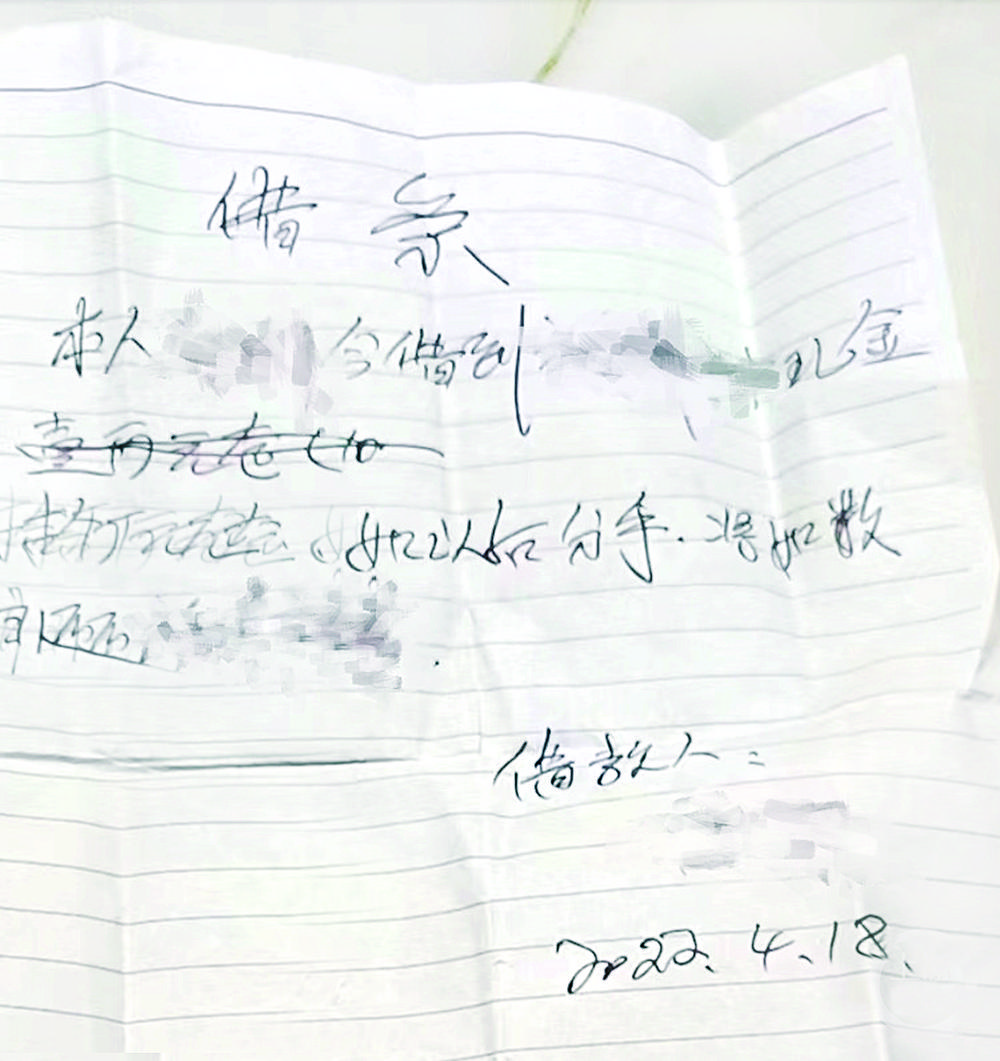 借条
本人 今借到 现金
壹万元整(10
如以后分手.将如数
归还
借款人:
2022.4.18.